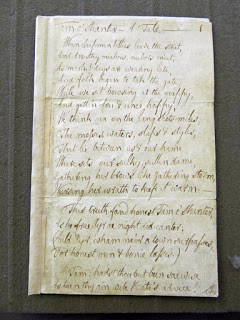 Tam o' Shanter — A Tale — 1
When chapman billies leave the street,
And drouthy neebors, neebors meet,
As market days are wearing late,
And folk begin to tak the gate,
While we sit bousing at the nappy,
And gettin fou & unco happy,
We think na on the lang Scots miles,
The mosses waters, slaps & styles,
That lie between us & our hame
Where sits our sulky, sullen dame
Gathering her brows like gathering storm,
Nursing her wrath to keep it warm —
This truth fand honest Tam o' Shanter,
As he frae Ayr ae night did canter,
(Auld Ayr, wham ne'er a town surpasses,
For honest men & bonie lasses.)
O Tam! hadst thou but been sae wise
As taen thy ain wife Kate's advice!